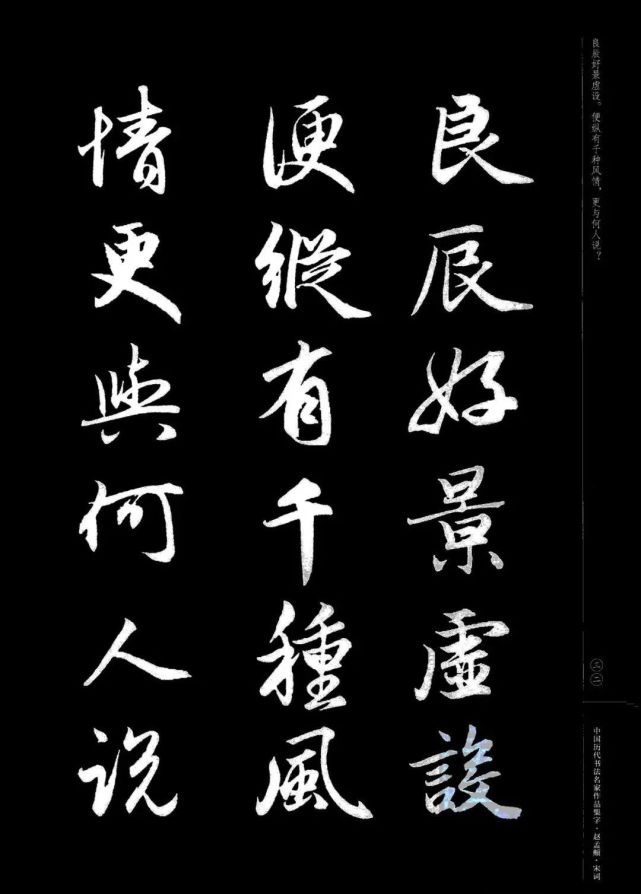 良辰好景虛設
便縱有千種風
情更與何人说
良辰好景虚设。便纵有千种风情，更与何人说？
三二
中国历代书法名家作品集字·赵孟頫·宋词